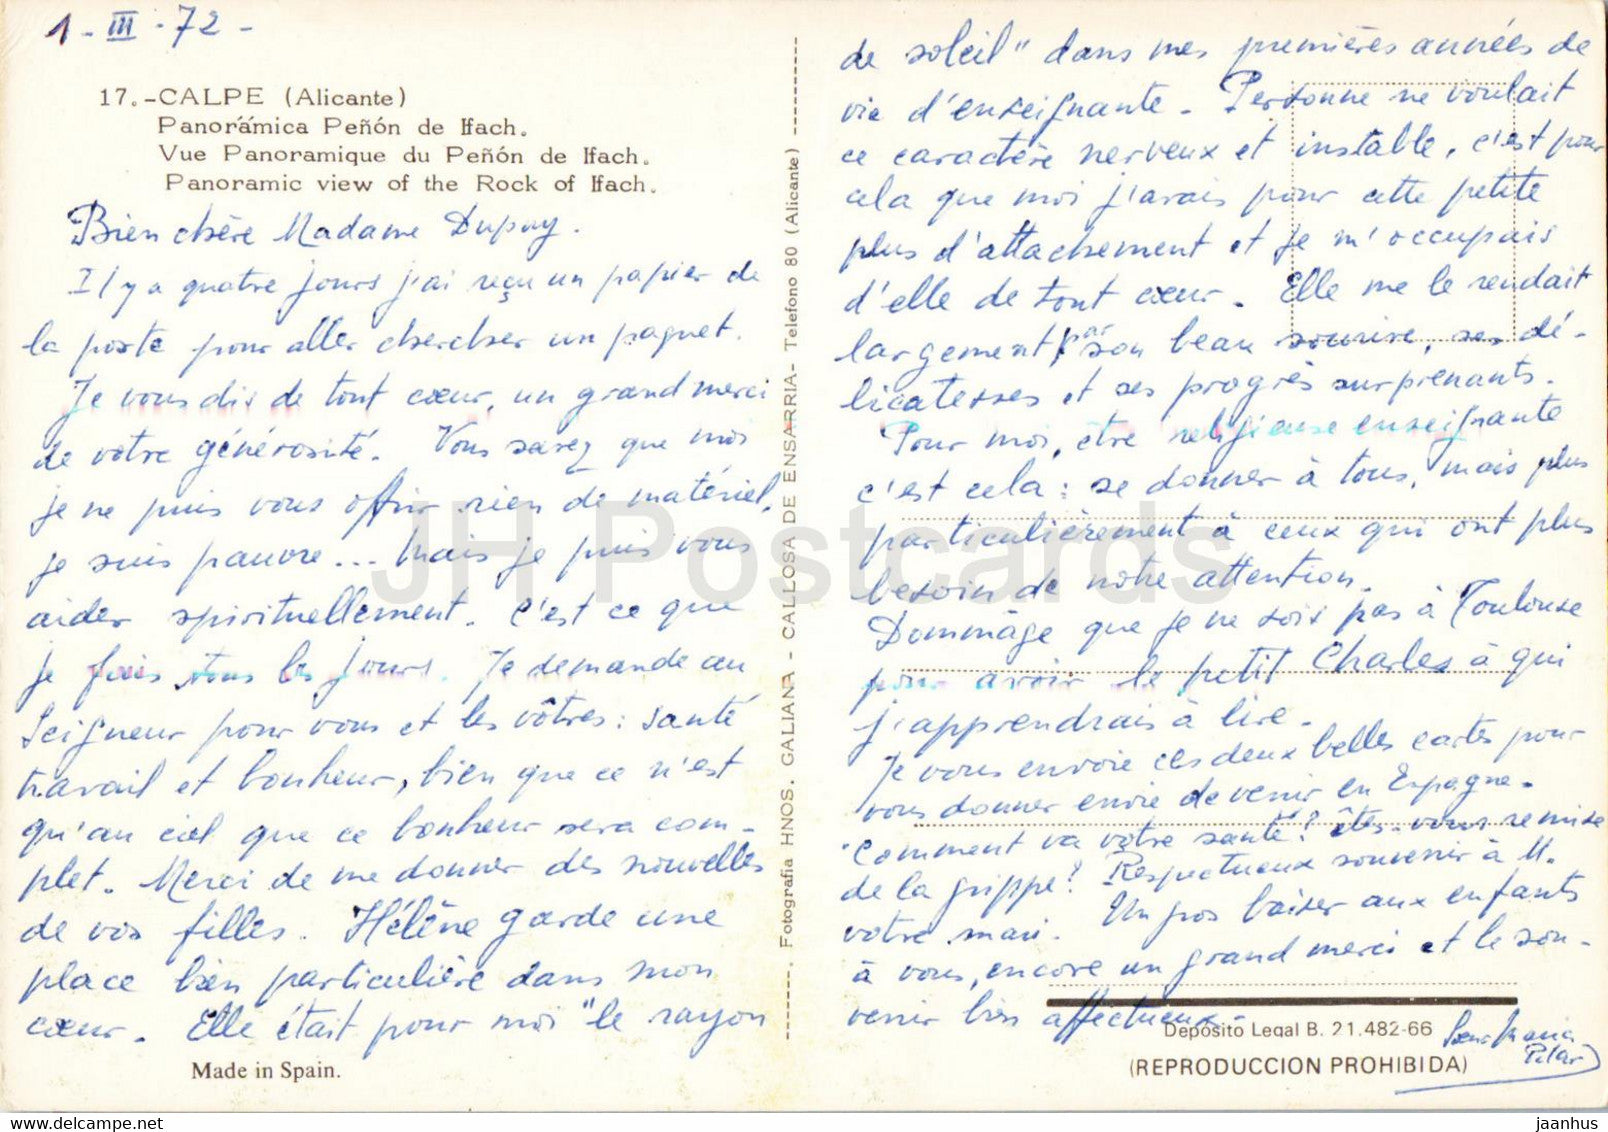 1 - III - 72 -
17.-CALPE (Alicante)
Panorámica Peñón de Ifach.
Vue Panoramique du Peñón de Ifach.
Panoramic view of the Rock of Ifach.
Bien chère Madame Dupuy.
Il y a quatre jours j'ai reçu un papier de
la poste pour aller chercher un paquet.
Je vous dis de tout cœur, un grand merci
de votre générosité. Vous savez que moi
je ne puis vous offrir rien de matériel,
je suis pauvre... Mais je puis vous
aider spirituellement. C'est ce que
je fais tous les jours. Je demande au
Seigneur pour vous et les vôtres : santé
travail et bonheur, bien que ce n'est
qu'au ciel que ce bonheur sera com-
plet. Merci de me donner des nouvelles
de vos filles. Hélène garde une
place bien particulière dans mon
cœur. Elle était pour moi "le rayon
Made in Spain.
Fotografia HNOS. GALIANA - CALLOSA DE ENSARRIA - Telefono 80 (Alicante)
de soleil" dans mes premières années de
vie d'enseignante. Personne ne voulait
ce caractère nerveux et instable, c'est pour
cela que moi j'avais pour cette petite
plus d'attachement et je m'occupais
d'elle de tout cœur. Elle me le rendait
largement par son beau sourire, ses dé-
licatesses et ses progrès surprenants.
Pour moi, être religieuse enseignante
c'est cela : se donner à tous, mais plus
particulièrement à ceux qui ont plus
besoin de notre attention.
Dommage que je ne sois pas à Toulouse
pour avoir le petit Charles à qui
j'apprendrais à lire.
Je vous envoie ces deux belles cartes pour
vous donner envie de venir en Espagne.
Comment va votre santé? êtes-vous remise
de la grippe? Respectueux souvenir à M.
votre mari. Un gros baiser aux enfants
à vous, encore un grand merci et le sou-
venir bien affectueux.
Sœur Maria
Pilar
Depósito Legal B. 21.482-66
(REPRODUCCION PROHIBIDA)
JH Postcards
jaanhus
www.delcampe.net